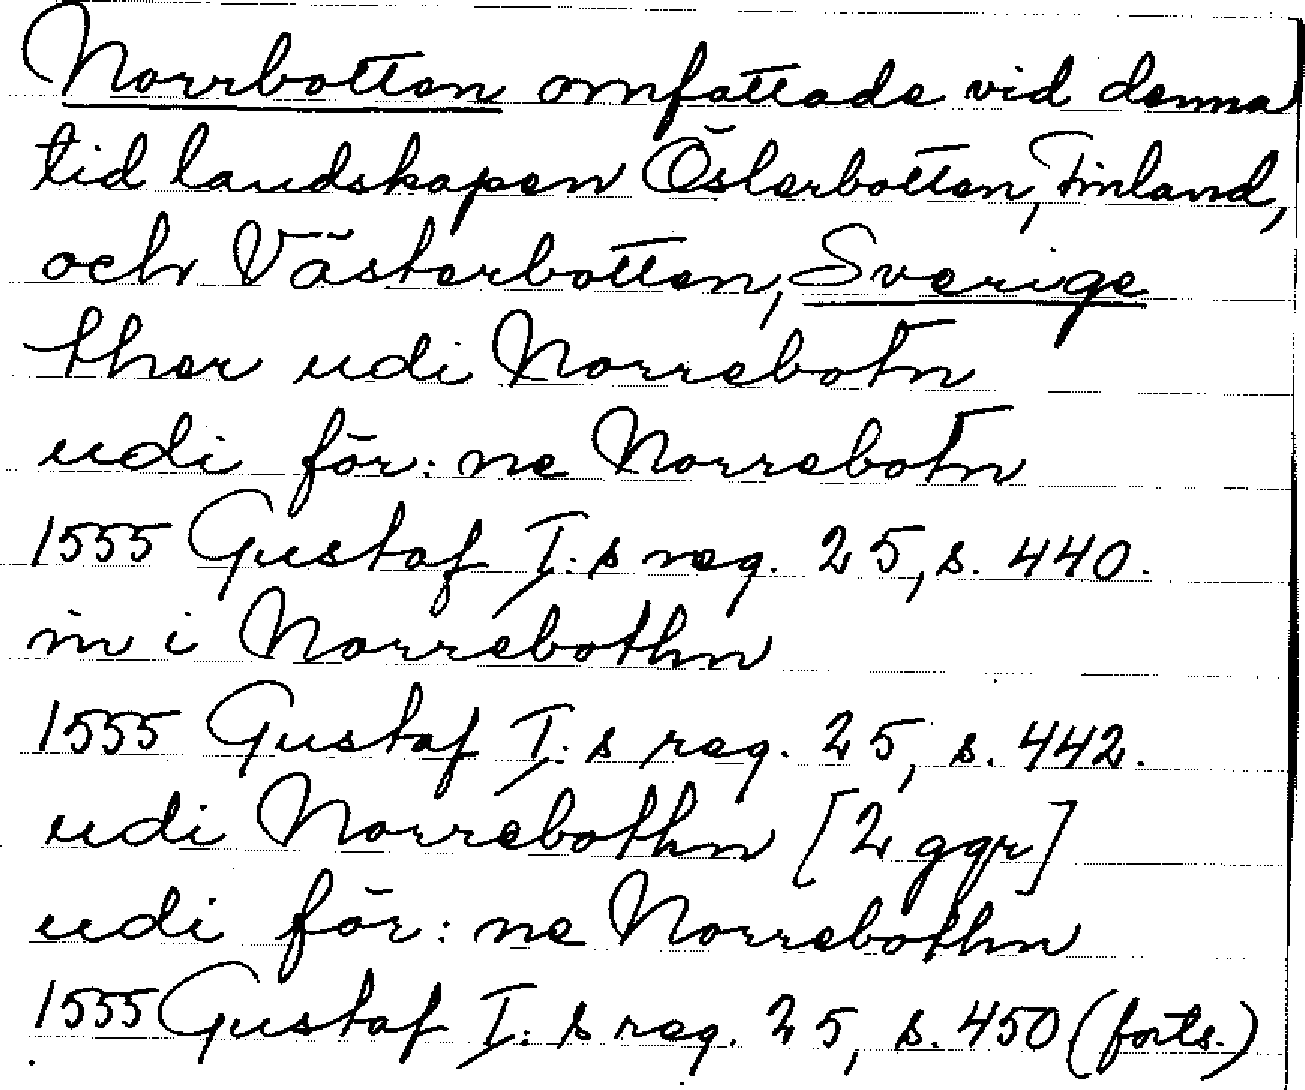 Norrbotten omfattade vid denna
tid landskapen Österbotten, Finland,
och Västerbotten, Sverige
ther udi Norrebotn
udi för:ne Norrebotn
1555 Gustaf I:s reg. 25, s. 440.
in i Norrebothn
1555 Gustaf I:s reg. 25, s. 442.
udi Norrebothn [2 ggr]
udi för:ne Norrebothn
1555 Gustaf I:s reg. 25, s. 450 (forts.)